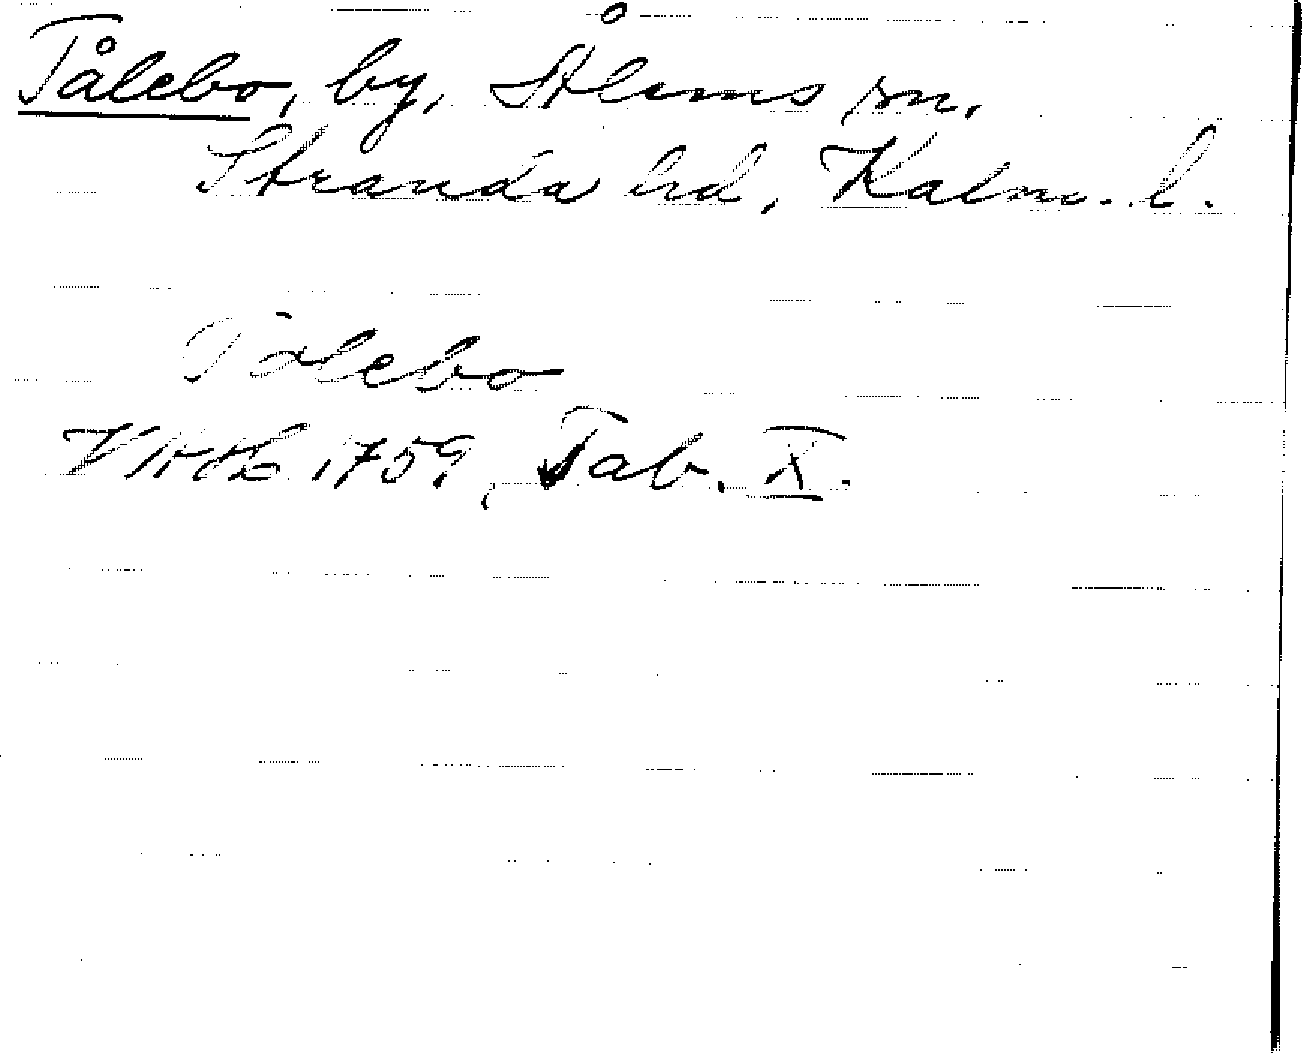 Tålebo, by, Ålems sn,
Stranda hd, Kalm. l.
Tålebo
1759, Tab. X.